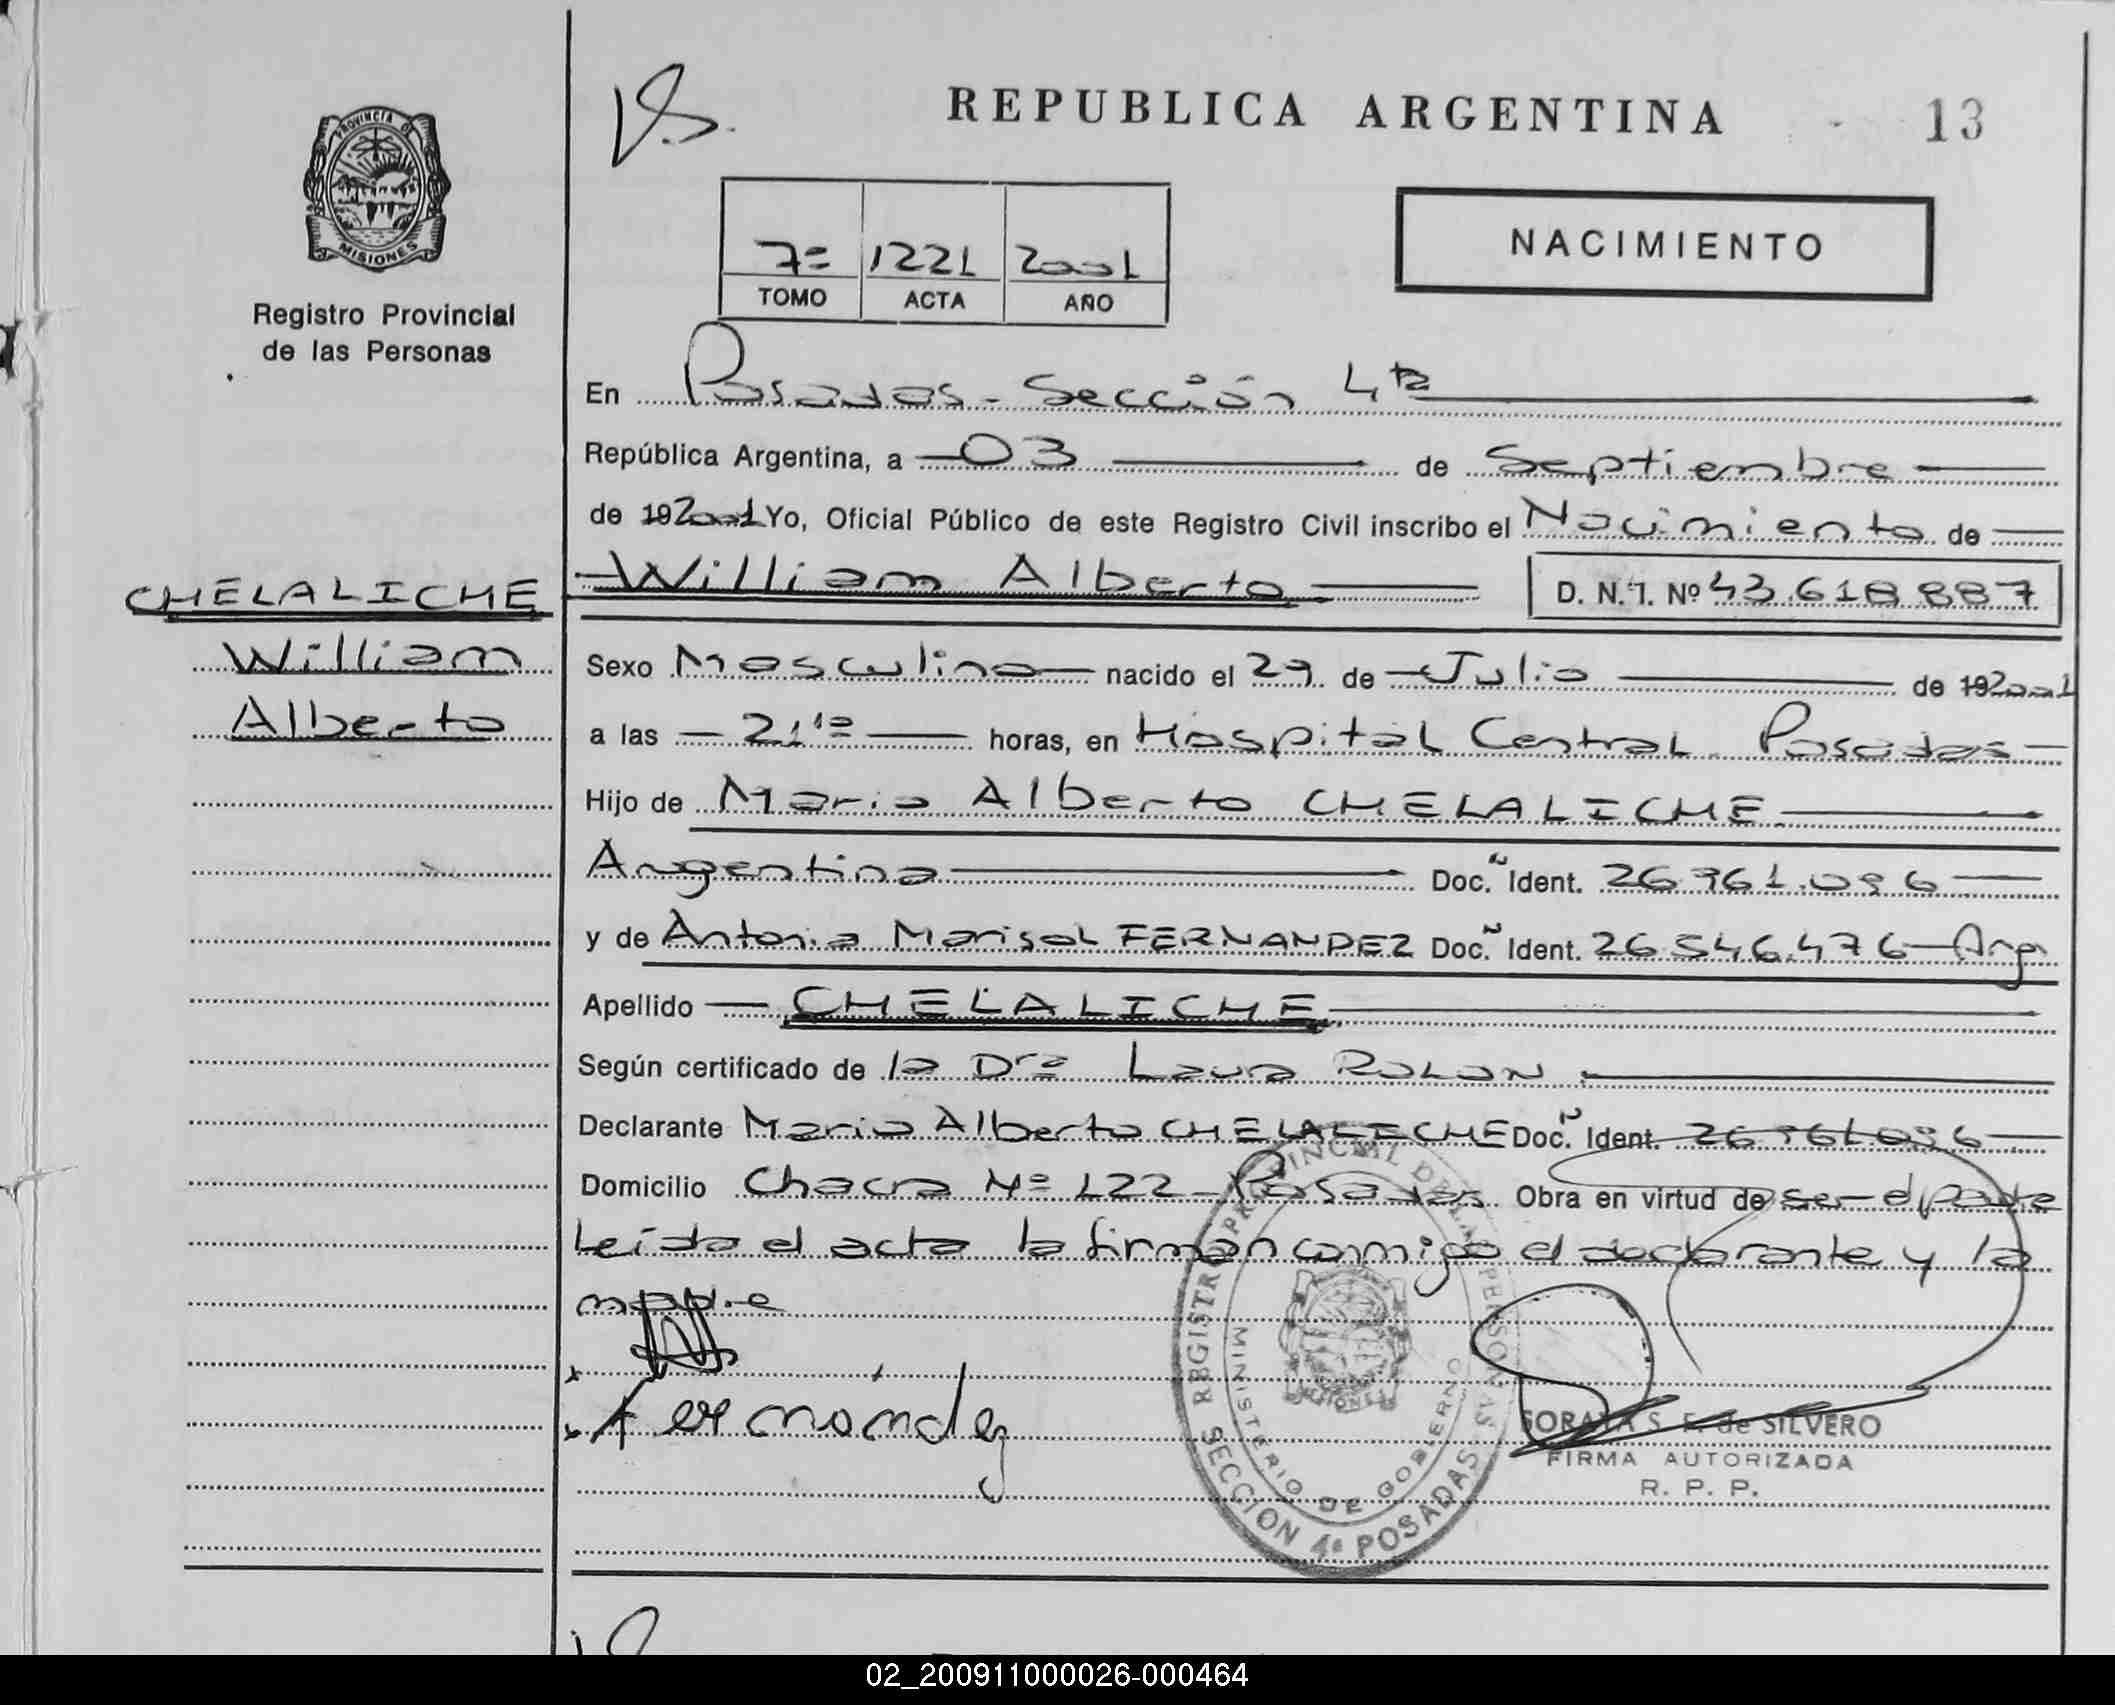 REPUBLICA ARGENTINA 13
PROVINCIA DE
MISIONES
Registro Provincial
de las Personas
7º 1221 2001
TOMO ACTA AÑO
NACIMIENTO
En Posadas - Sección 4ta
República Argentina, a 03 de Septiembre
de 19 2001 Yo, Oficial Público de este Registro Civil inscribo el Nacimiento de
CHELALICHE
William
Alberto
William Alberto D. N. I. Nº 43.618.887
Sexo Masculino nacido el 29 de Julio de 19 2001
a las 21 horas, en Hospital Central - Posadas
Hijo de Mario Alberto CHELALICHE
Argentino Doc. Ident. 26.961.096
y de Antonia Marisol FERNANDEZ Doc. Ident. 26.546.476 - Arg
Apellido CHELALICHE
Según certificado de la Dra Laura ROLON
Declarante Mario Alberto CHELALICHE Doc. Ident. 26.961.096
Domicilio Chacra Nº 122 - Posadas Obra en virtud de ser el padre
Leída el acta la firman conmigo el declarante y la
madre
Fernández
REGISTRO PROVINCIAL DE LAS PERSONAS
MINISTERIO DE GOBIERNO
SECCION 4ª POSADAS
SORAYA S. F. de SILVERO
FIRMA AUTORIZADA
R. P. P.
02_200911000026-000464